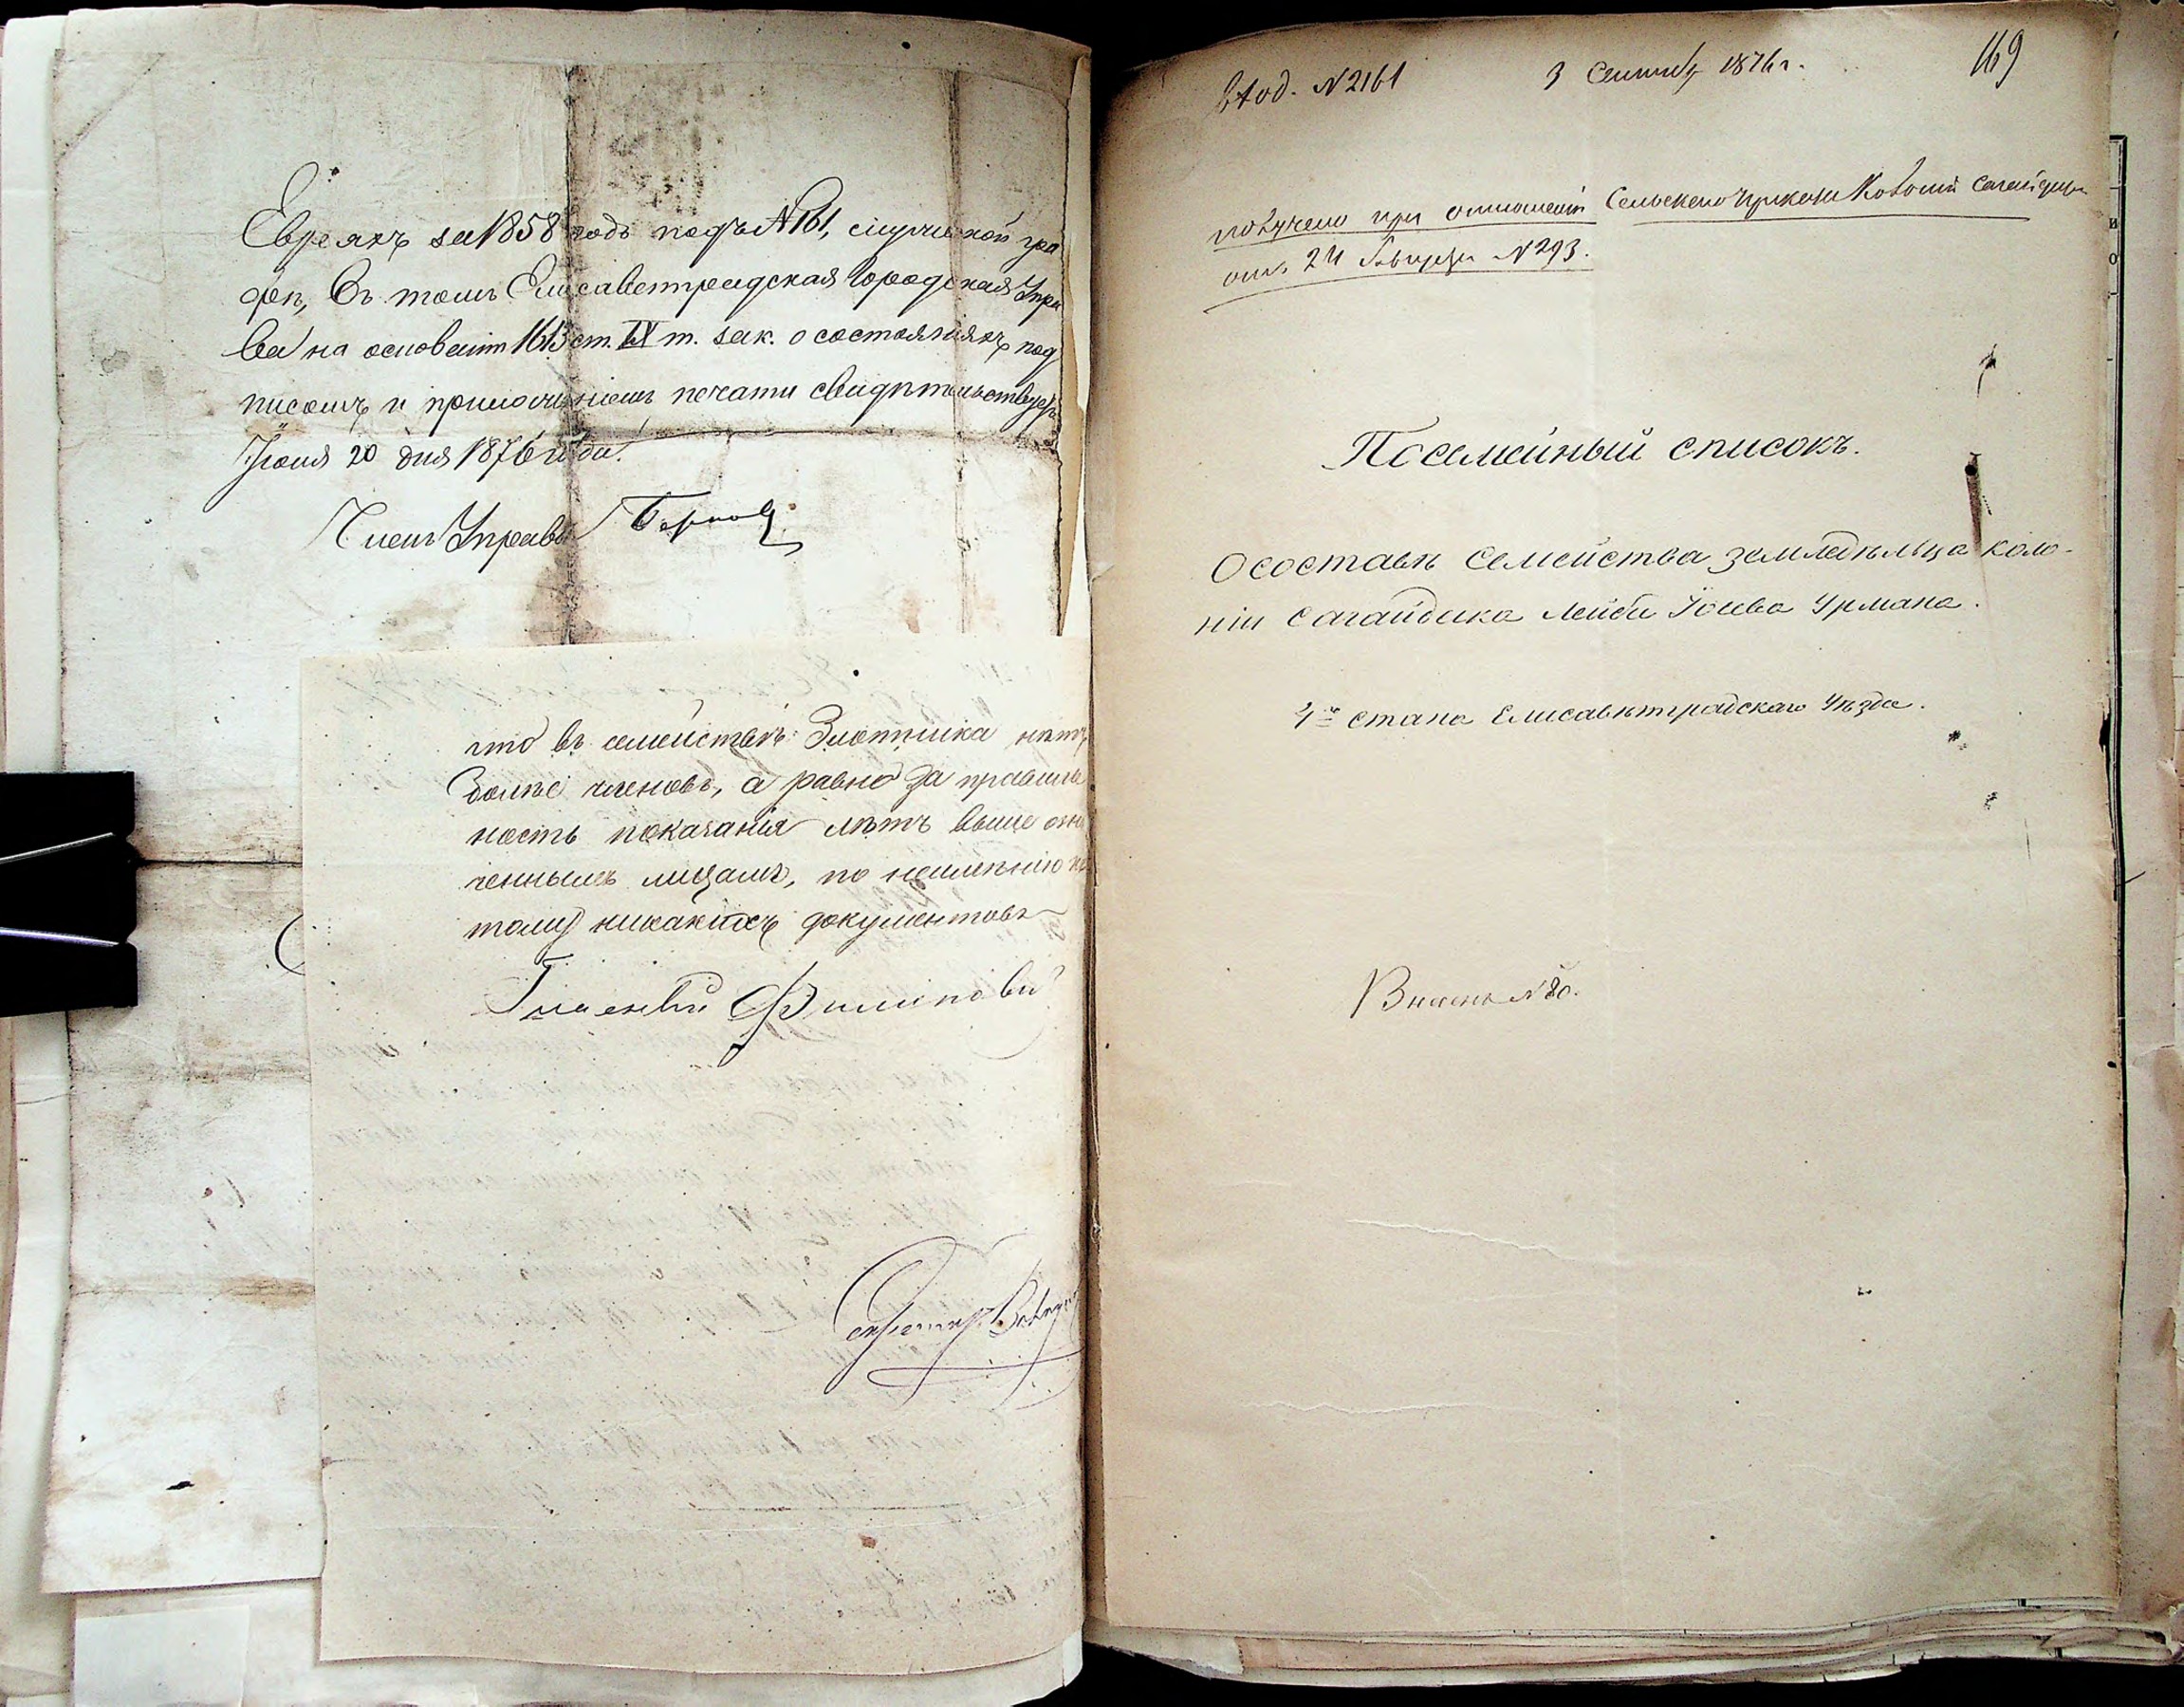 Евреяхъ за 1858 годъ подъ №161, мужеской гра
фѣ, Въ томъ Елисаветградская Городская Упра
ва на основаніи 1613 ст. IX т. зак. о состояніяхъ под
писомъ и приложеніемъ печати свидѣтельствуетъ
Іюня 20 дня 1876 года.
Членъ Управы
что въ семействѣ Злотника нѣтъ
болѣе членовъ, а равно за правиль
ность показанія лѣтъ выше озна
ченнымъ лицамъ, по неимѣнію къ
тому никакихъ документовъ
Гласный
Секретарь
Вход. №2161 3 Сентябр 1876 г. 169
получено при отношеніи Сельскаго Приказа Колоніи Сагайдака
отъ 24 Августа №293.
Посемейный списокъ.
О составѣ семейства земледѣльца коло-
ніи Сагайдака Лейби Іоѣва Урмана.
4го стана Елисаветградскаго Уѣзда.
№80.